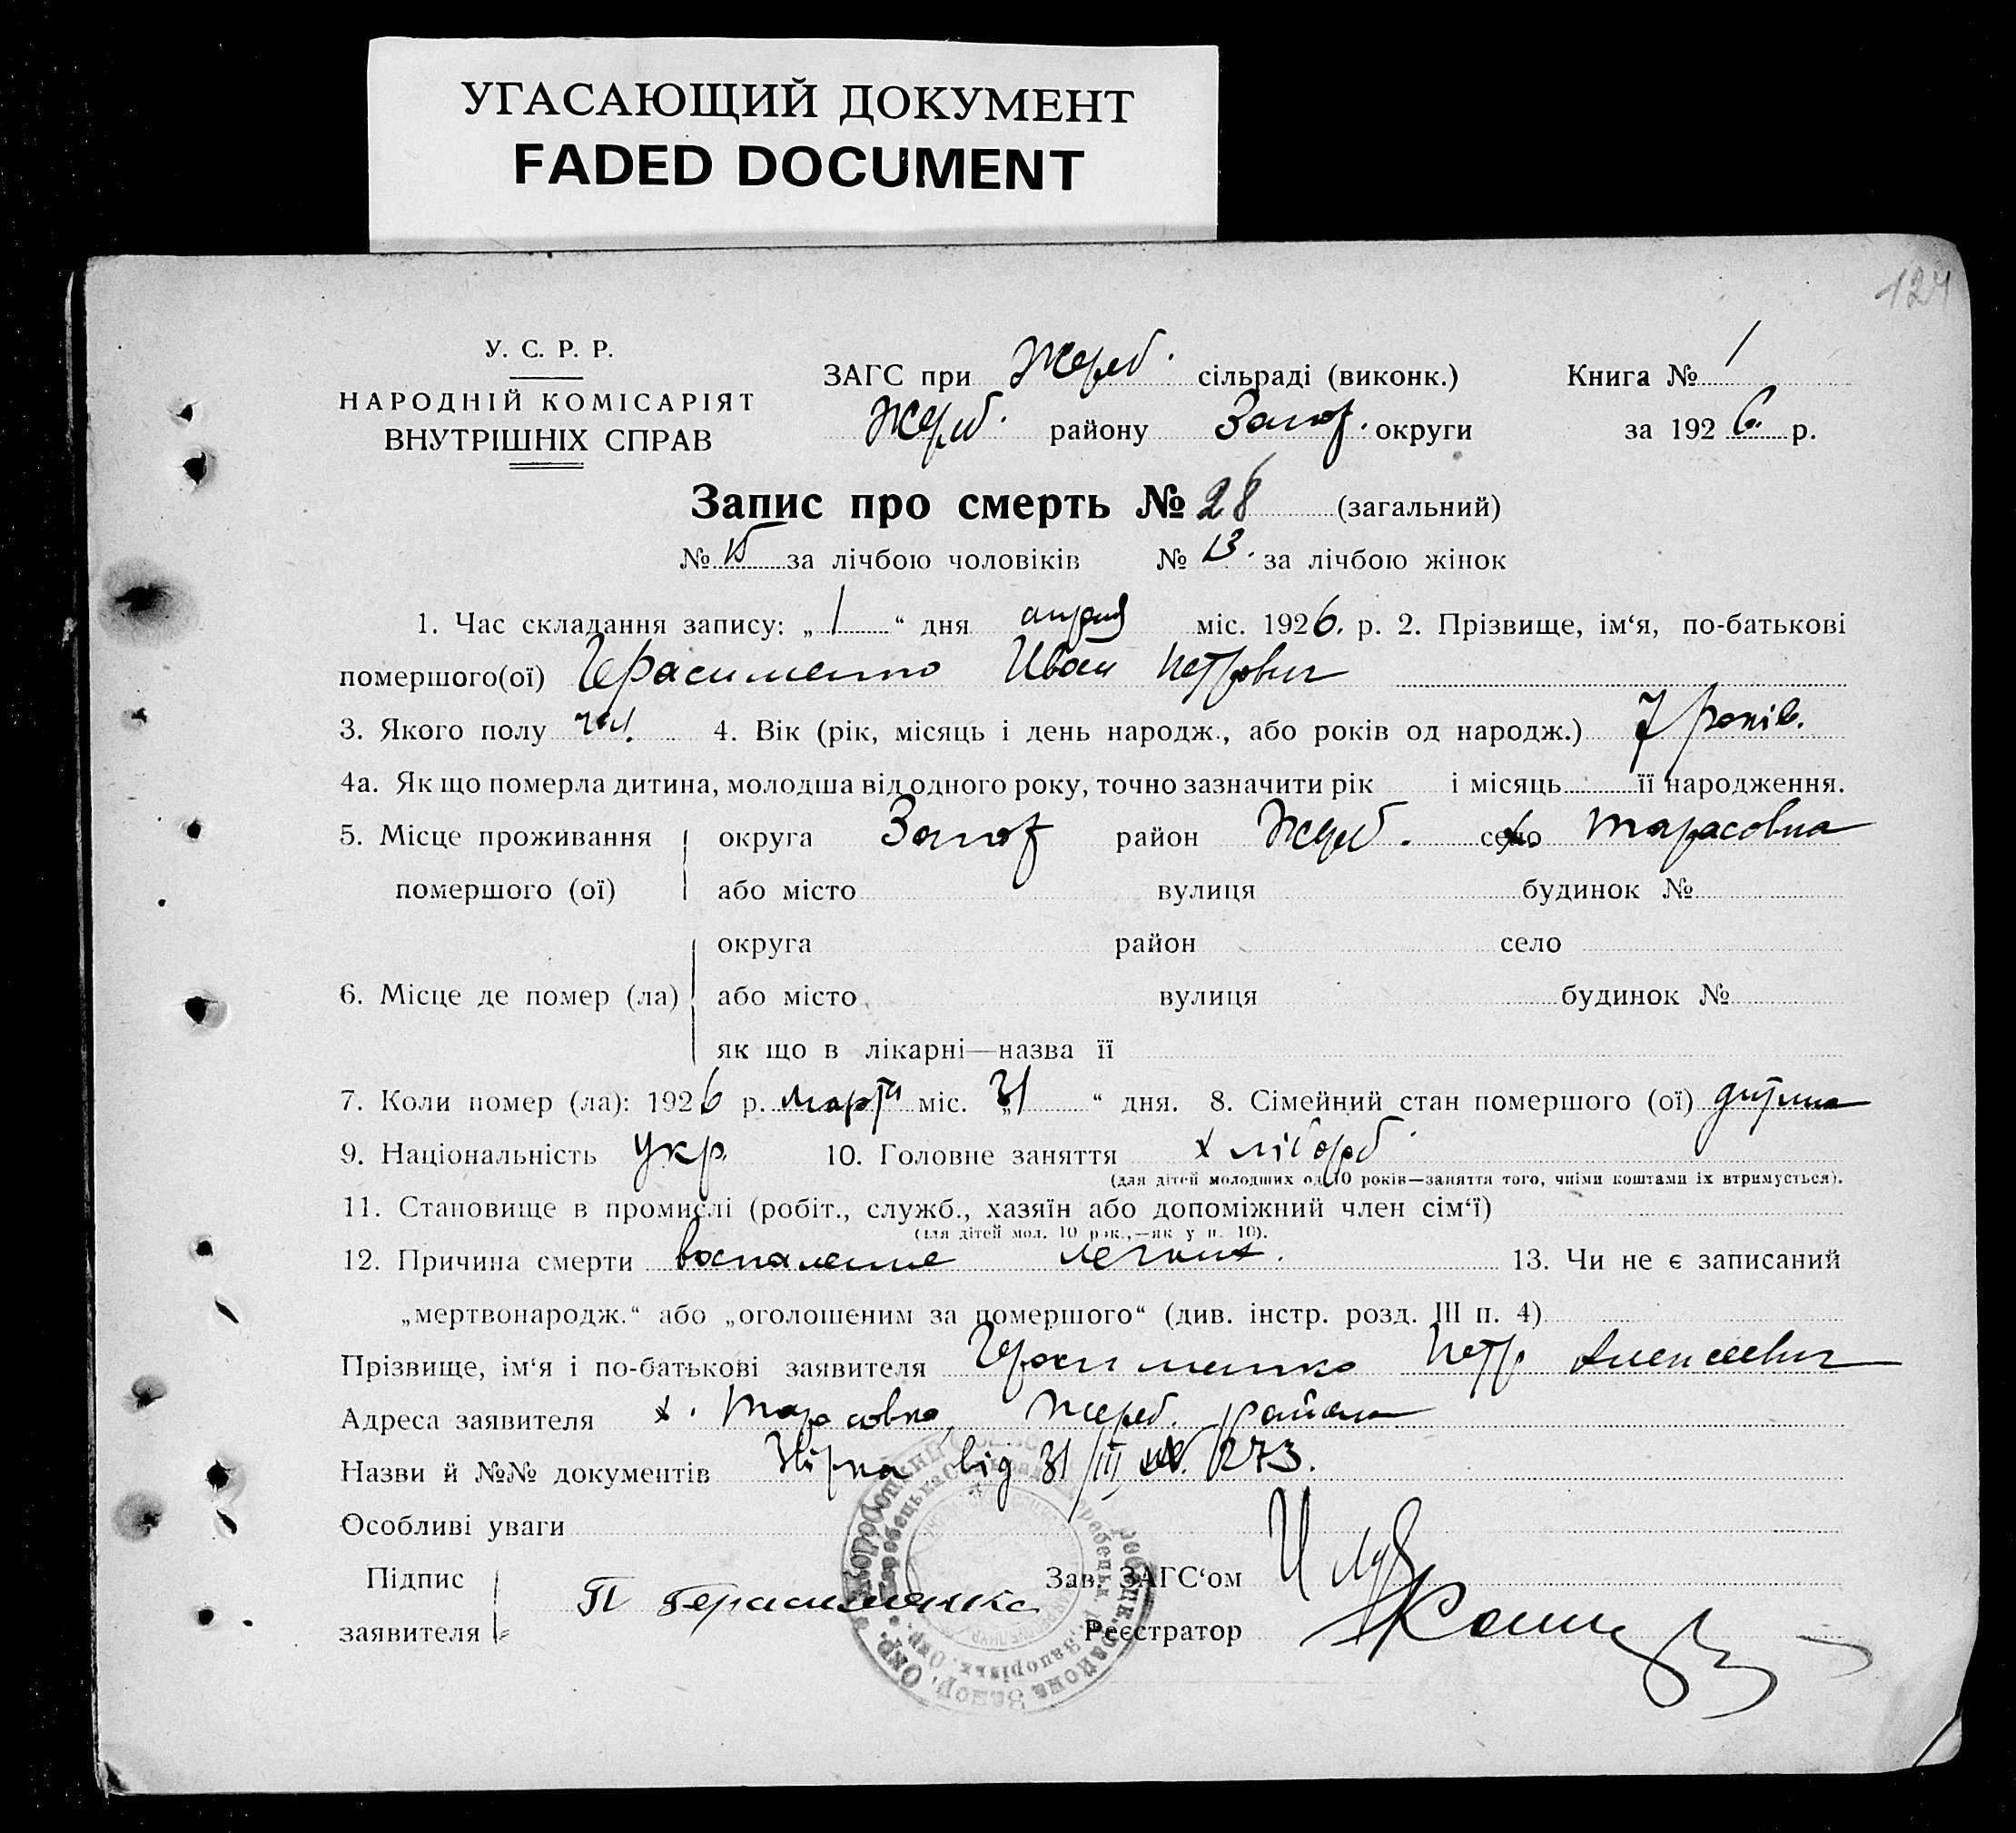 УГАСАЮЩИЙ ДОКУМЕНТ
FADED DOCUMENT
124
У. С. Р. Р.
НАРОДНІЙ КОМІСАРІЯТ
ВНУТРІШНІХ СПРАВ
ЗАГС при Жереб. сільраді (виконк.) Книга № 1
Жереб. району Запор. округи за 1926 р.
Запис про смерть № 28 (загальний)
№ 15 за лічбою чоловіків № 13. за лічбою жінок
1. Час складання запису: „1“ дня апреля міс. 1926. р. 2. Прізвище, ім‘я, по-батькові
помершого(ої) Герасименко Иван Петрович
3. Якого полу чол. 4. Вік (рік, місяць і день народж., або років од народж.) 7 років.
4а. Як що померла дитина, молодша від одного року, точно зазначити рік і місяць її народження.
5. Місце проживання округа Запор район Жереб. село х. Тарасовка
помершого (ої) або місто вулиця будинок №
округа район село
6. Місце де помер (ла) або місто вулиця будинок №
як що в лікарні—назва її
7. Коли помер (ла): 1926 р. марта міс. „31“ дня. 8. Сімейний стан помершого (ої) дитина
9. Національність укр. 10. Головне заняття хлібороб
(для дітей молодших од 10 років—заняття того, чиїми коштами їх втримується).
11. Становище в промислі (робіт., служб., хазяїн або допоміжний член сім‘ї)
(для дітей мол. 10 рок.,—як у п. 10).
12. Причина смерти воспаление легких. 13. Чи не є записаний
„мертвонародж.“ або „оголошеним за помершого“ (див. інстр. розд. III п. 4)
Прізвище, ім‘я і по-батькові заявителя Герасименко Петр Алексеевич
Адреса заявителя х. Тарасовка, Жереб. района
Назви й №№ документів від 31/III 1273.
Особливі уваги
Підпис
заявителя П Герасименко
Зав. ЗАГС‘ом
Реєстратор